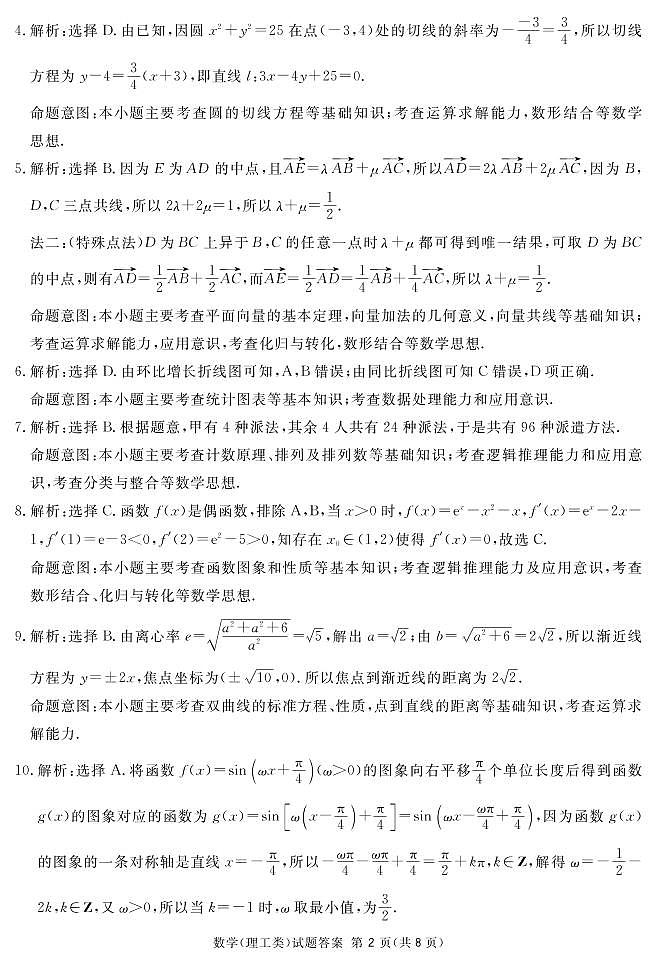 4. 解析:选择 D. 由已知,因圆 x²+y²=25 在点(-3,4)处的切线的斜率为-\frac{-3}{4}=\frac{3}{4},所以切线
方程为 y-4=\frac{3}{4}(x+3),即直线 l:3x-4y+25=0.
命题意图:本小题主要考查圆的切线方程等基础知识;考查运算求解能力,数形结合等数学
思想.
5. 解析:选择 B. 因为 E 为 AD 的中点,且\overrightarrow{AE}=λ\overrightarrow{AB}+μ\overrightarrow{AC},所以\overrightarrow{AD}=2λ\overrightarrow{AB}+2μ\overrightarrow{AC},因为 B,
D,C 三点共线,所以 2λ+2μ=1,所以 λ+μ=\frac{1}{2}.
法二:(特殊点法)D 为 BC 上异于 B,C 的任意一点时 λ+μ 都可得到唯一结果,可取 D 为 BC
的中点,则有\overrightarrow{AD}=\frac{1}{2}\overrightarrow{AB}+\frac{1}{2}\overrightarrow{AC},而\overrightarrow{AE}=\frac{1}{2}\overrightarrow{AD}=\frac{1}{4}\overrightarrow{AB}+\frac{1}{4}\overrightarrow{AC},所以 λ+μ=\frac{1}{2}.
命题意图:本小题主要考查平面向量的基本定理,向量加法的几何意义,向量共线等基础知识;
考查运算求解能力,应用意识,考查化归与转化,数形结合等数学思想.
6. 解析:选择 D. 由环比增长折线图可知,A,B 错误;由同比折线图可知 C 错误,D 项正确.
命题意图:本小题主要考查统计图表等基本知识;考查数据处理能力和应用意识.
7. 解析:选择 B. 根据题意,甲有 4 种派法,其余 4 人共有 24 种派法,于是共有 96 种派遣方法.
命题意图:本小题主要考查计数原理、排列及排列数等基础知识;考查逻辑推理能力和应用意
识,考查分类与整合等数学思想.
8. 解析:选择 C. 函数 f(x)是偶函数,排除 A,B,当 x>0 时,f(x)=eˣ-x²-x,f′(x)=eˣ-2x-
1,f′(1)=e-3<0,f′(2)=e²-5>0,知存在 x₀∈(1,2)使得 f′(x)=0,故选 C.
命题意图:本小题主要考查函数图象和性质等基本知识;考查逻辑推理能力及应用意识,考查
数形结合、化归与转化等数学思想.
9. 解析:选择 B. 由离心率 e=\sqrt{\frac{a²+a²+6}{a²}}=√5,解出 a=√2;由 b=\sqrt{a²+6}=2√2,所以渐近线
方程为 y=±2x,焦点坐标为(±√10,0). 所以焦点到渐近线的距离为 2√2.
命题意图:本小题主要考查双曲线的标准方程、性质,点到直线的距离等基础知识,考查运算求
解能力.
10. 解析:选择 A. 将函数 f(x)=sin(ωx+\frac{π}{4})(ω>0)的图象向右平移\frac{π}{4}个单位长度后得到函数
g(x)的图象对应的函数为 g(x)=sin[ω(x-\frac{π}{4})+\frac{π}{4}]=sin(ωx-\frac{ωπ}{4}+\frac{π}{4}),因为函数 g(x)
的图象的一条对称轴是直线 x=-\frac{π}{4},所以-\frac{ωπ}{4}-\frac{ωπ}{4}+\frac{π}{4}=\frac{π}{2}+kπ,k∈Z,解得 ω=-\frac{1}{2}-
2k,k∈Z,又 ω>0,所以当 k=-1 时,ω 取最小值,为\frac{3}{2}.
数学(理工类)试题答案 第 2 页(共 8 页)